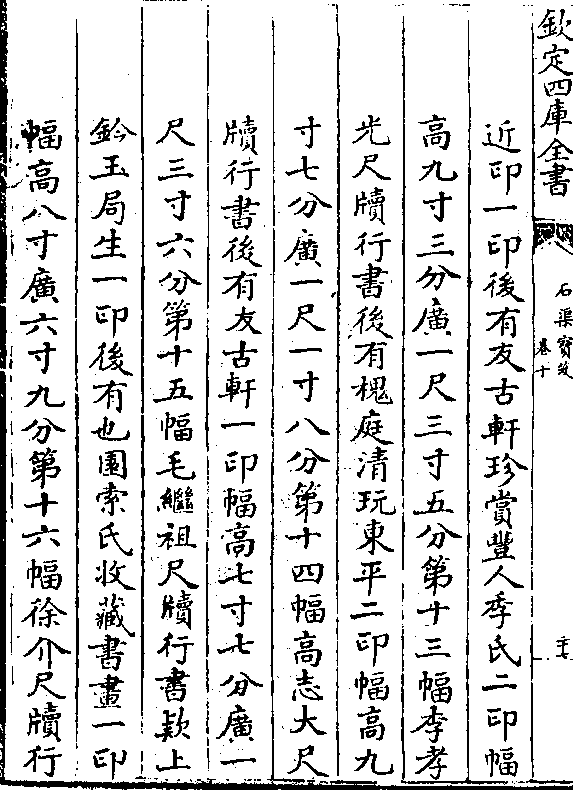 欽定四庫全書
石渠寶笈
卷十
近印一印後有友古軒珍賞豐人季氏二印幅
高九寸三分廣一尺三寸五分第十三幅李孝
光尺牘行書後有槐庭清玩東平二印幅高九
寸七分廣一尺一寸八分第十四幅高志大尺
牘行書後有友古軒一印幅高七寸七分廣一
尺三寸六分第十五幅毛繼祖尺牘行書欵上
鈐玉局生一印後有也園索氏收藏書畫一印
幅高八寸廣六寸九分第十六幅徐介尺牘行